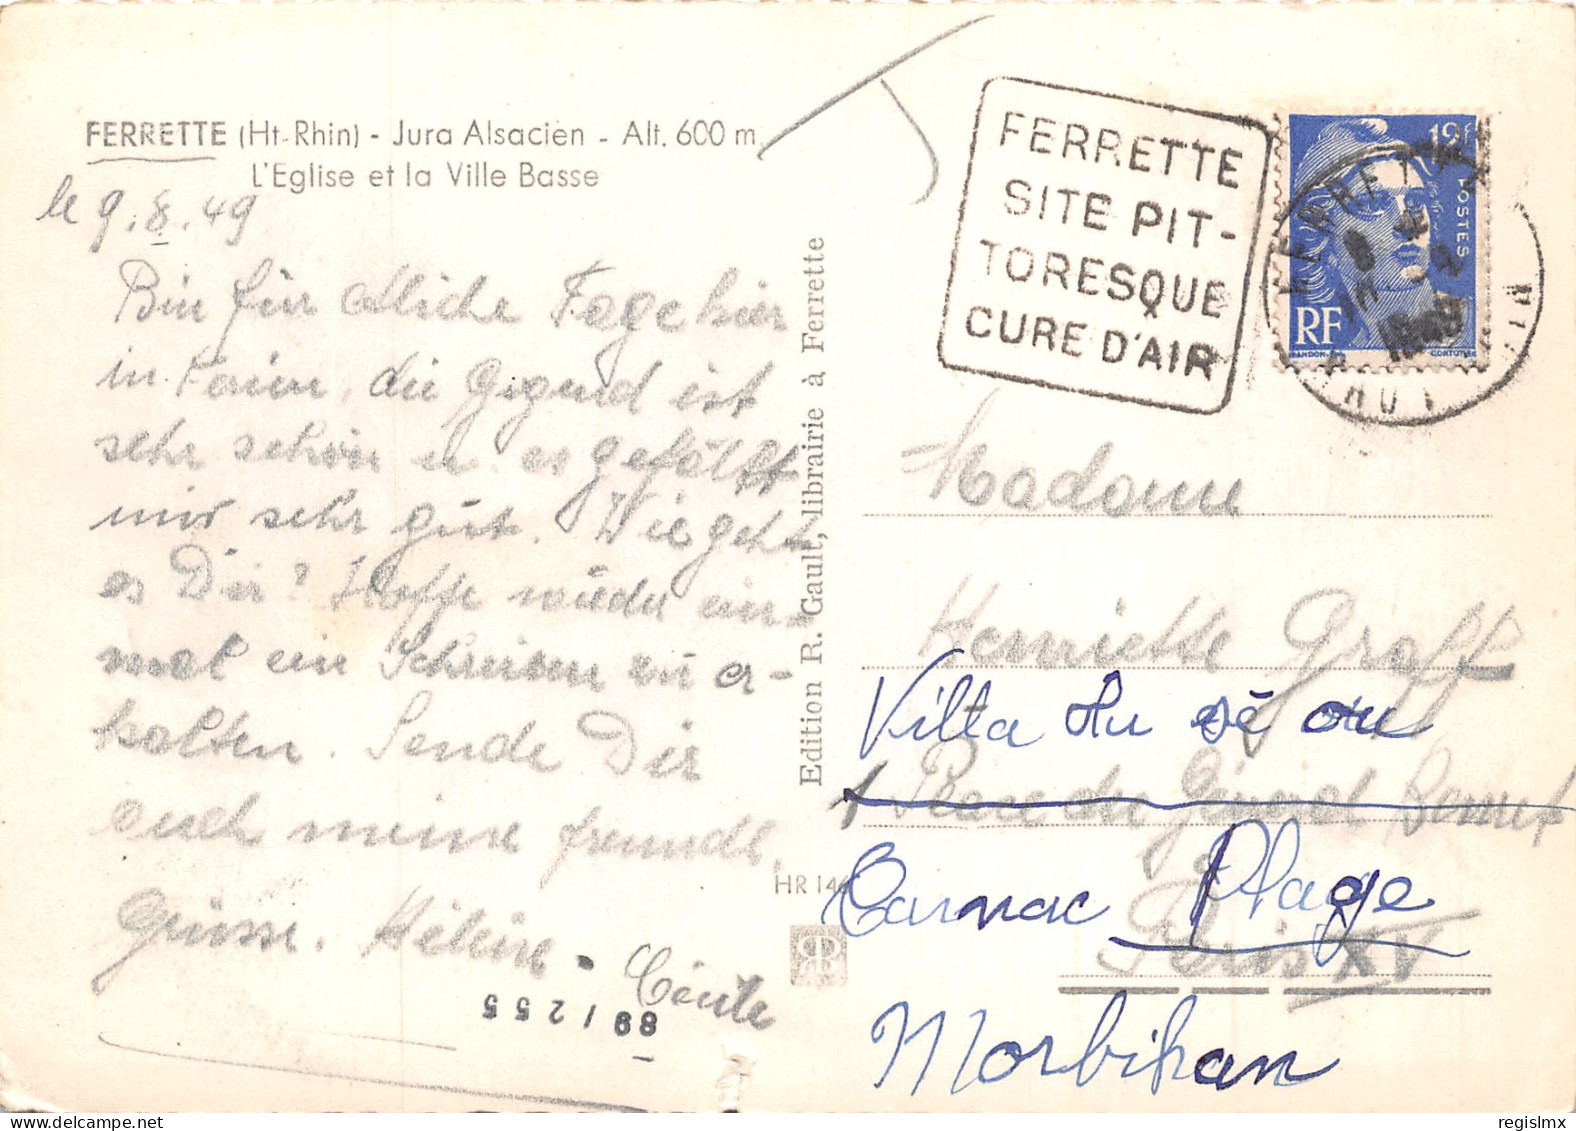 FERRETTE (Ht-Rhin) - Jura Alsacien - Alt. 600 m
L'Eglise et la Ville Basse
le 9.8.49
Bin für etliche Tage hier
in Ferien, die Gegend ist
sehr schön u. es gefällt
mir sehr gut. Wie geht
es Dir? Hoffe wieder ein-
mal ein Schreiben zu er-
halten. Sende Dir
auch meine freundl.
Grüsse. Hélène - Cécile
89/2 55
Edition R. Gault, librairie à Ferrette
HR 146
FERRETTE
SITE PIT-
TORESQUE
CURE D'AIR
12F
POSTES
RF
GANDON
CORTOT
FERRETTE
1949
HAUT RHIN
Madame
Henriette Graff
Villa
1 Place du Général
Carnac Plage
Paris XV
Morbihan
regislmx